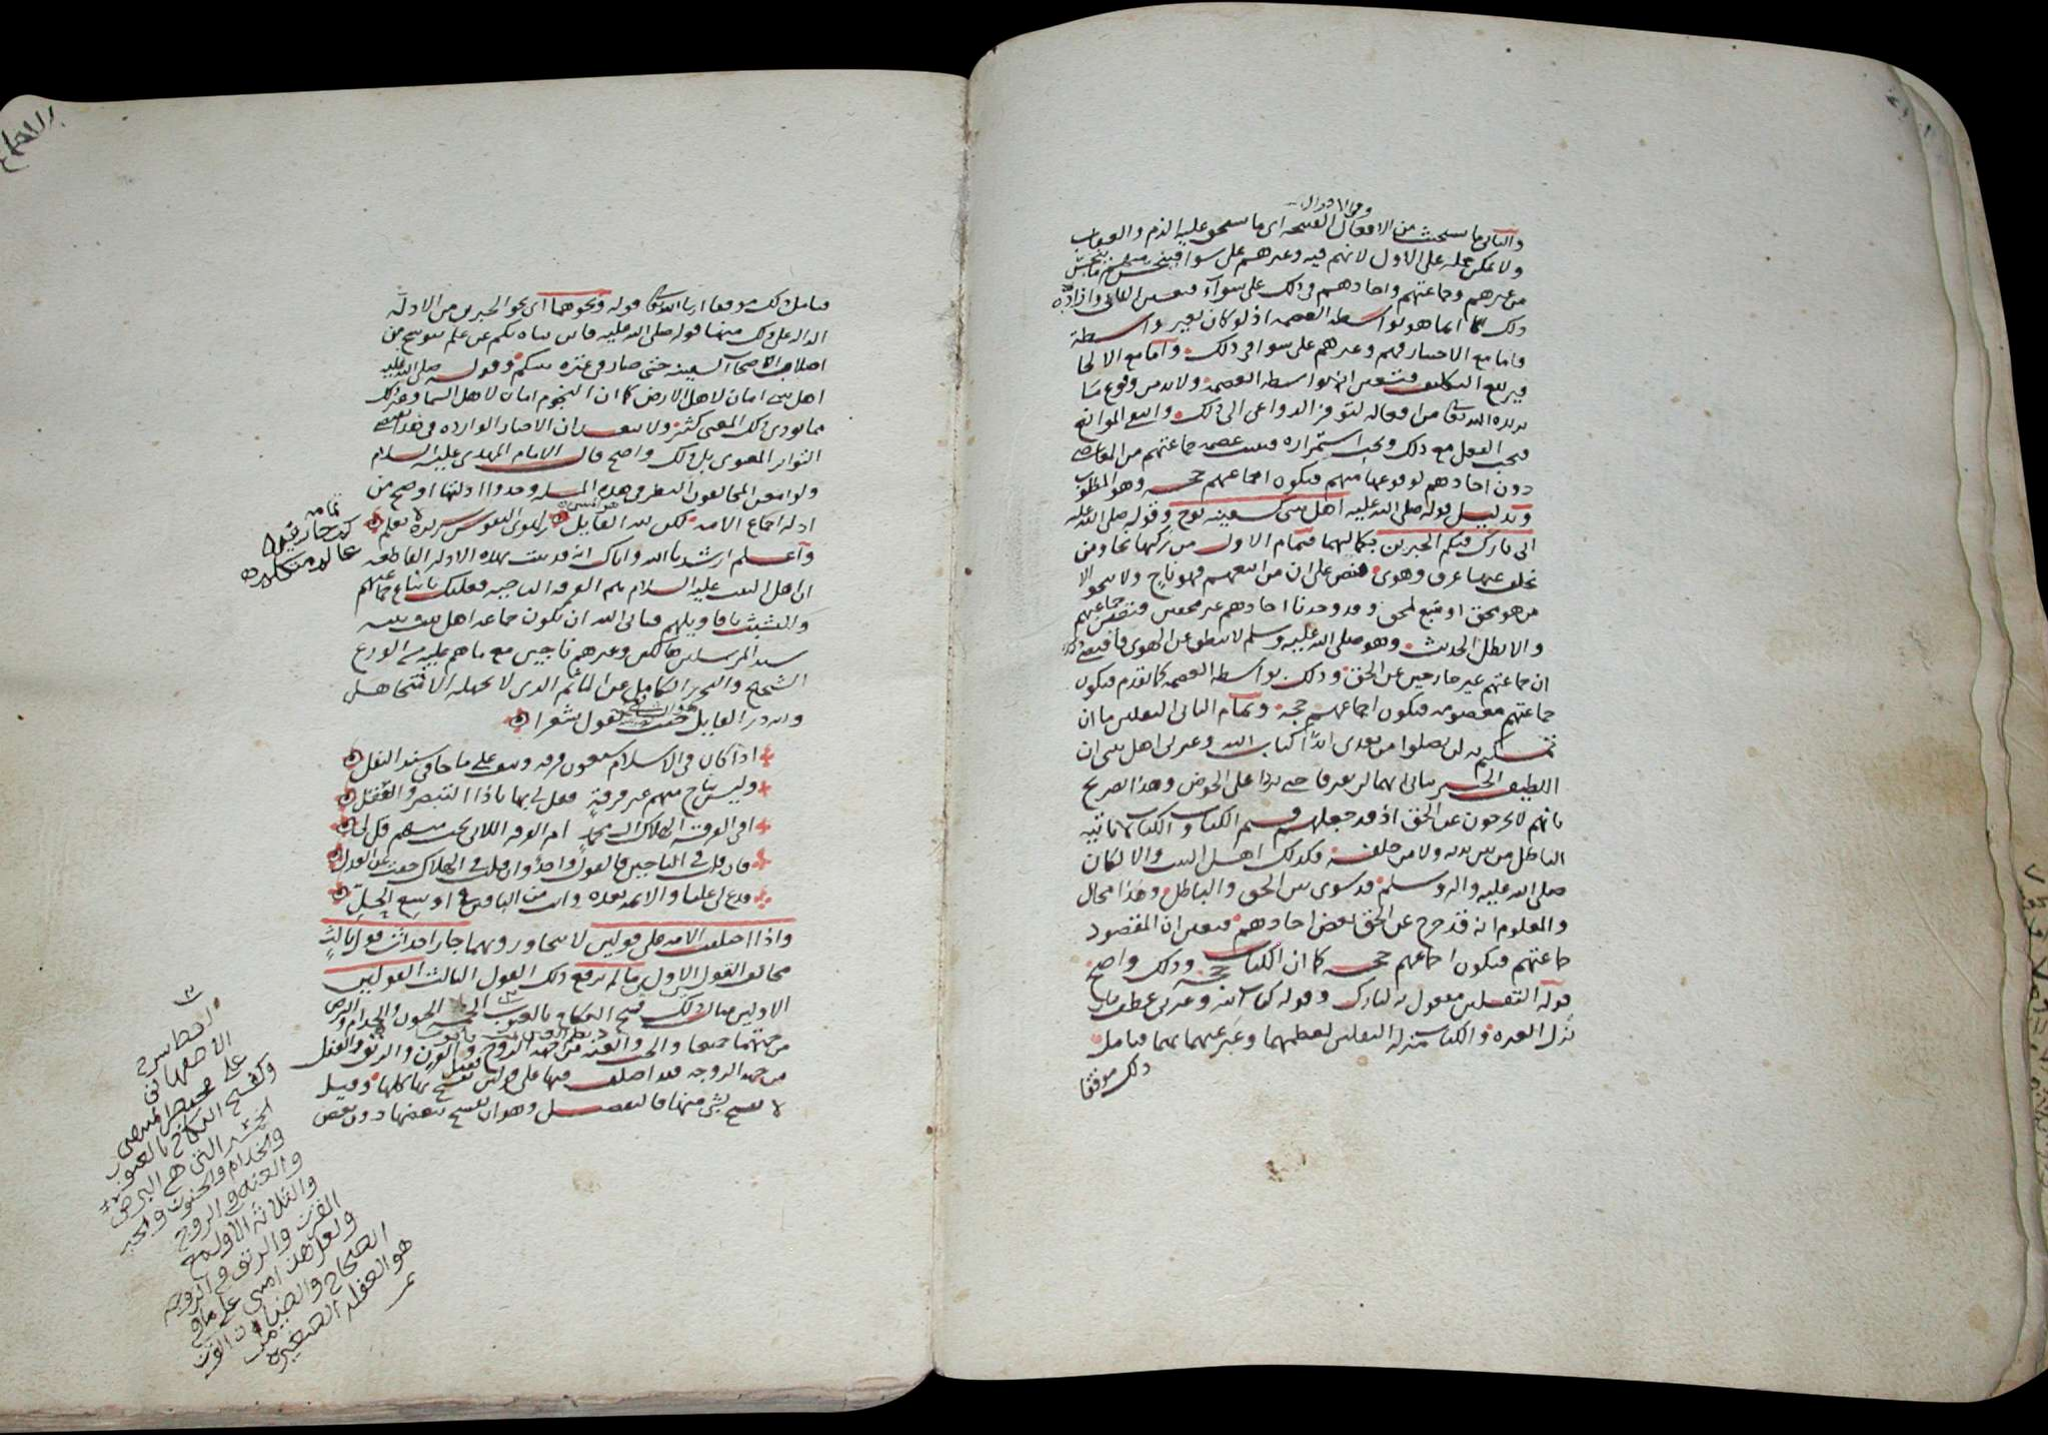 وفي الاقوال
والثاني ما يستخبث من الافعال القبيحه اي ما يستحق عليه الذم والعقاب
ولا يمكن حمله على الاول لانهم فيه وغيرهم على سوا
من غيرهم وجماعتهم واحادهم في ذلك على سوآء فتعين الثاني واذا
ذلك انما هو بواسطة العصمه اذ لو كان بغير واسطة
فاما مع الاختيار فهم وغيرهم على سوا في ذلك وآما مع الالجا
فيرتفع التكليف فتعين انه بواسطه العصمه ولا بد من وقوع ما
يريده الله تعالى من افعاله لتوفر الدواعي الى ذلك وانتفى الموانع
فيجب الفعل مع ذلك ويجب استمراره فثبت عصمه جماعتهم من المعاصي
دون احادهم لوقوعها منهم فيكون اجماعهم حجه وهو المطلوب
وبدليل قوله صلى الله عليه اهل بيتي كسفينه نوح وقوله صلى الله عليه
اني تارك فيكم الخبرين بكمالهما فتمام الاول من ركبها نجا ومن
تخلف عنها غرق وهوى فنص على ان من اتبعهم فهو ناج ولا ينجو الا
من هو محق او متبع لمحق وقد وجدنا احادهم غير محقين فتعين جماعتهم
والا بطل الحديث وهو صلى الله عليه وسلم لا ينطق عن الهوى فاقتضى ذلك
ان جماعتهم غير خارجين عن الحق وذلك بواسطه العصمه كما تقدم فيكون
جماعتهم معصومه فيكون اجماعهم حجه وتمام الثاني الثقلين ما ان
تمسكتم به لن تضلوا من بعدي ابدًا كتاب الله وعترتي اهل بيتي ان
اللطيف الخبير نباني انهما لن يفترقا حتى يردا على الحوض وهذا صريح
بانهم لا يخرجون عن الحق اذ قد جعلهم قسيم الكتاب والكتاب لا ياتيه
الباطل من بين يديه ولا من خلفه فكذلك اهل البيت والا لكان
صلى الله عليه واله وسلم قد سوى بين الحق والباطل وهذا محال
والمعلوم انه قد خرج عن الحق بعض احادهم فتعين ان المقصود
جماعتهم فيكون اجماعهم حجه كما ان الكتاب حجة وذلك واضح
قوله الثقلين مفعول به لتارك وقوله كتاب الله وعترتي عطف بيان
نزل العتره والكتاب منزله الثقلين لعظمهما وعبر عنهما بهما فتامل
ذلك موفقا
فتامل ذلك موفقا ان شا الله تعالى قوله ونحوهما اي نحو الخبرين من الادلة
الداله على ذلك منها قوله صلى الله عليه فاين يتاه بكم عن علم تنوسخ من
اصلاب اصحاب السفينه حتى صار في عترة نبيكم وقوله صلى الله عليه
اهل بيتي امان لاهل الارض كما ان النجوم امان لاهل السما وغير ذلك
مما يودي ذلك المعنى كثير ولا يبعد ان الاخبار الوارده في هذا
التواتر المعنوي بل ذلك واضح قال الامام المهدي عليه السلام
ولو امعن المخالفون النظر في هذه المسله وجدوا ادلتها اوضح من
ادله اجماع الامه لكن لله القايل هوى النفوس سريرة لا تعلم
وآعلم ارشدنا الله واياك انه قد ثبت بهذه الادله القاطعه
ان اهل البيت عليه السلام هم الفرقه الناجيه فعليك باتباع جماعتهم
والتشبث باقاويلهم فيابى الله ان تكون جماعه اهل بيت نبيه
سيد المرسلين هالكين وغيرهم ناجين مع ما هم عليه من الورع
الشحيح والتحرز الكامل عن الماثم الذي لا يجهله الا متجاهل
ولله در القايل حيث يقول شعرا
اذا كان في الاسلام سبعون فرقه ونيف على ما جا في سند النقل
وليس بناج منهم غير فرقةٍ فقل لي بها ياذا التبصر والعقل
افي الفرقه الهلاك ال محمدٍ ام الفرقه اللاتي نجت منهم قل لي
فان قلت في الناجين فالقول واحدٌ وان قلت في الهلاك حفت عن العدل
فدع لي عليا والايمه بعده وانت من الباقين في اوسع الحِلِّ
واذا اختلفت الامه على قولين لا يتجاوزونهما جاز احداث قول ثالث
مخالف القول الاول ما لم يرفع ذلك القول الثالث القولين
الاولين مثال ذلك فسخ النكاح بالعيوب الخمسه الجنون والجذام والبرص
من جهتهما جميعا والجب والعنه من جهه الزوج والقرن والرتق والعفل
من جهه الزوجه فقد اختلف فيها على قولين تفسخ بها كلها وقيل
لا تفسخ بشي منها فالتفصيل وهو ان تفسخ ببعضها دون بعض
تمامه
كم حار فيه
عالم متكلم
الاصفهاني
على مختصر المنتهى
وكفسخ النكاح بالعيوب
الخمسه التي هي البرص
والجذام والجنون والجب
والعنه في الزوج
والثلاثه الاول مع
القرن والرتق في الزوجه
ولعل هذا مبني على ما في
الصحاح والضيا من ان القرن
هو العفله الصغيره